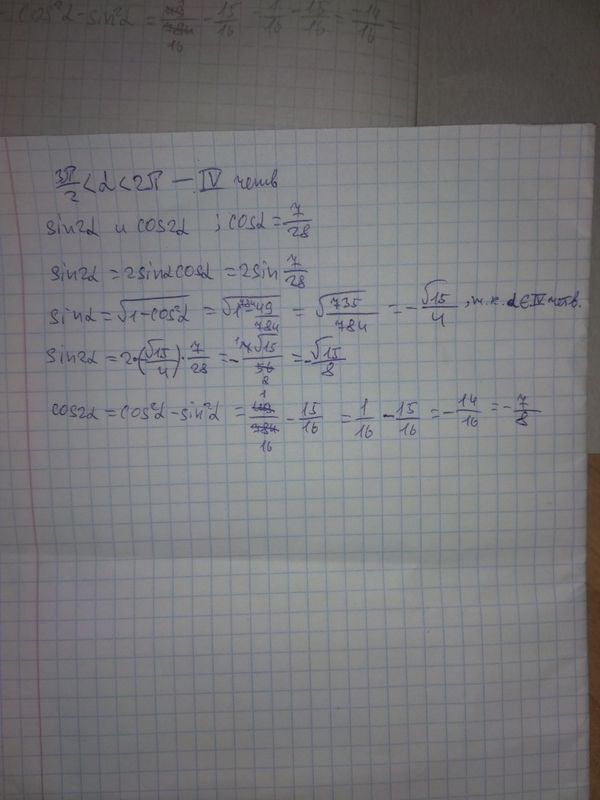 cos²α-sin²α = 49/784 16 - 15/16 1/16 - 15/16 = -14/16 =
3π/2 < α < 2π — IV четв
sin2α и cos2α ; cosα = 7/28
sin2α = 2sinαcosα = 2sin 7/28
sinα = √1-cos²α = √1 784 - 49/784 = √735/784 = -√15/4 , т.к. α∈IV четв.
sin2α = 2·(√15/4)·7/28 = - 14√15/56 = -√15/8
cos2α = cos²α - sin²α = 49/784 1/16 - 15/16 = 1/16 - 15/16 = -14/16 = -7/8